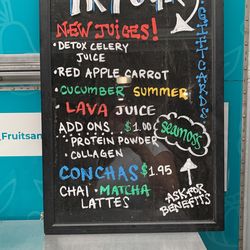 TRY OUR
NEW JUICES!
• DETOX CELERY
JUICE
• RED APPLE CARROT
• CUCUMBER SUMMER
• LAVA JUICE
ADD ONS $1.00
seamoss
• PROTEIN POWDER
• COLLAGEN
CONCHAS $1.95
CHAI • MATCHA
LATTES
ASK FOR
BENEFITS
GIFT CARDS
Fruitsan